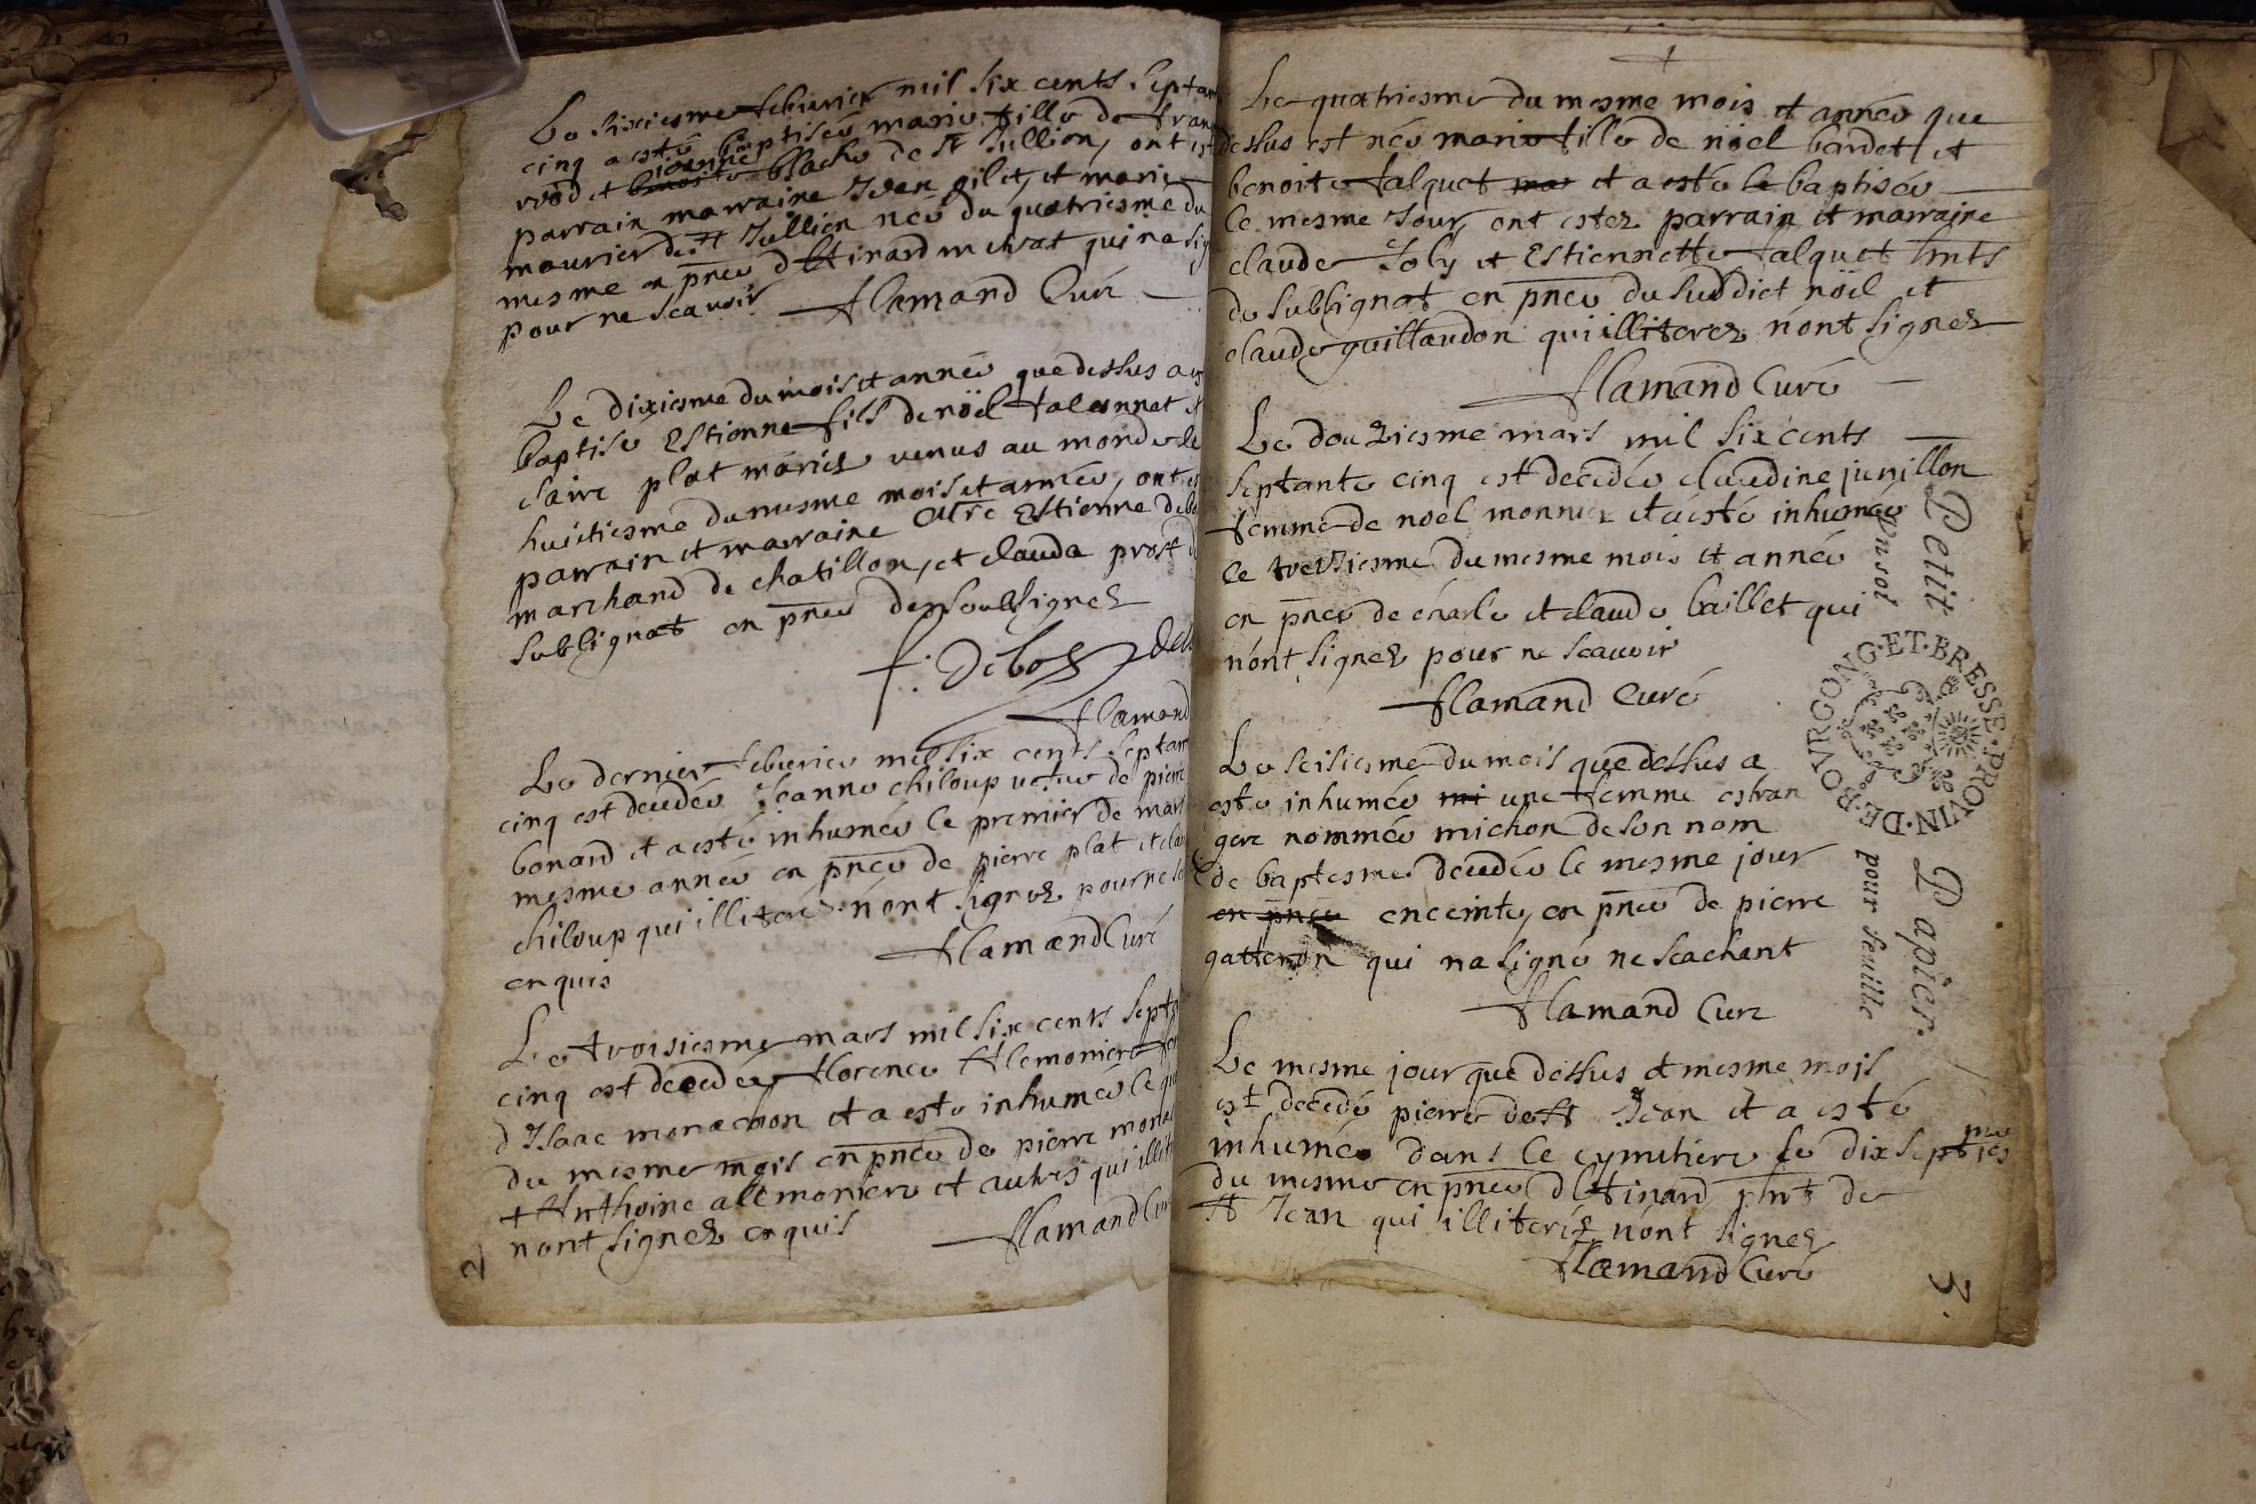 Le sixiesme feburier mil six cents septan
cinq a esté baptiseé marie fille de fran
ioanne
rvod et benoite blache de st Jullien, ont est
parrain marraine Jean gilet, et marie
mourier de st Jullien neé du quatriesme du
mesme en pnce d'Etinard mehvat qui na sig
pour ne scavoir flamand Curé
Le dixiesme du mois et anneé que dessus a es
baptisé Estienne fils de nöel falconnet et
claire plat mariés venus au monde le
huictiesme du mesme mois et anneé, ont es
parrain et marraine Estienne debo
marchand de chatillon, et clauda prost d
sublignat en pnce des soubsignez
f. Debost
flamand
Le dernier feburier mil six cents septan
cinq est decedeé Jeanne chiloup vefve de pierre
bonard et a esté inhumeé le premier de mars
mesme anneé en pnce de pierre plat et clau
chiloup qui illiterés n'ont signez pour ne sc
flamand Curé
enquis
Le troisiesme mars mil six cents septa
cinq est decedeé florence Alemoniere fem
d'Isaac monachon et a esté inhumeé le qua
du mesme mois en pnce de pierre monac
et Anthoine allemoniere et autres qui illit
n'ont signez enquis flamand Cur
2
Le quatriesme du mesme mois et anneé que
dessus est neé marie fille de nöel bardet et
benoite falquet mar et a esté le baptiseé
le mesme Jour, ont estez parrain et marraine
claude Joly et Estiennette falquet hnts
de sublignat en pnce du susdict nöel et
claude guillaudon qui illiterez n'ont signez
flamand Curé
Le douziesme mars mil six cents
septante cinq est decedeé claudine junillon
femme de noel monnier et a esté inhumeé
le treiziesme du mesme mois et anneé
en pnce de charle et claude baillet qui
n'ont signez pour ne scavoir
flamand Curé
Le seisiesme du mois que dessus a
esté inhumeé une femme estran
gere nommeé michon de son nom
de baptesme decedeé le mesme jour
en pnce enceinte, en pnce de pierre
gatteron qui na signé ne scachant
flamand Curé
Le mesme jour que dessus et mesme mois
est decedé pierre de st Jean et a esté
inhumé dans le cymetiere le dix septies
me
du mesme en pnce d'Etinard de
st Jean qui illiteréz n'ont signez
flamand Curé
3.
Petit Papier.
Un sol pour feuille
PROVIN·DE·BOVRGONG·ET·BRESSE